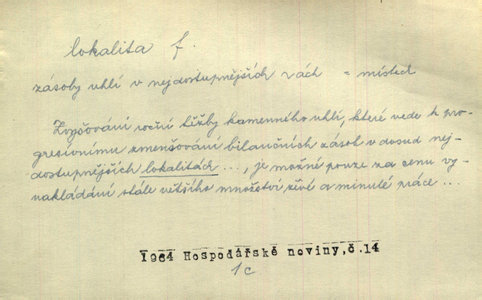 lokalita f.
zásoby uhlí v nejdostupnějších lách = místech
Zvyšování roční těžby kamenného uhlí, které vede k pro-
gresivnímu zmenšování bilančních zásob v dosud nej-
dostupnějších lokalitách ..., je možné pouze za cenu vy-
nakládání stále většího množství živé a minulé práce ...
1964 Hospodářské noviny, č.14
1c